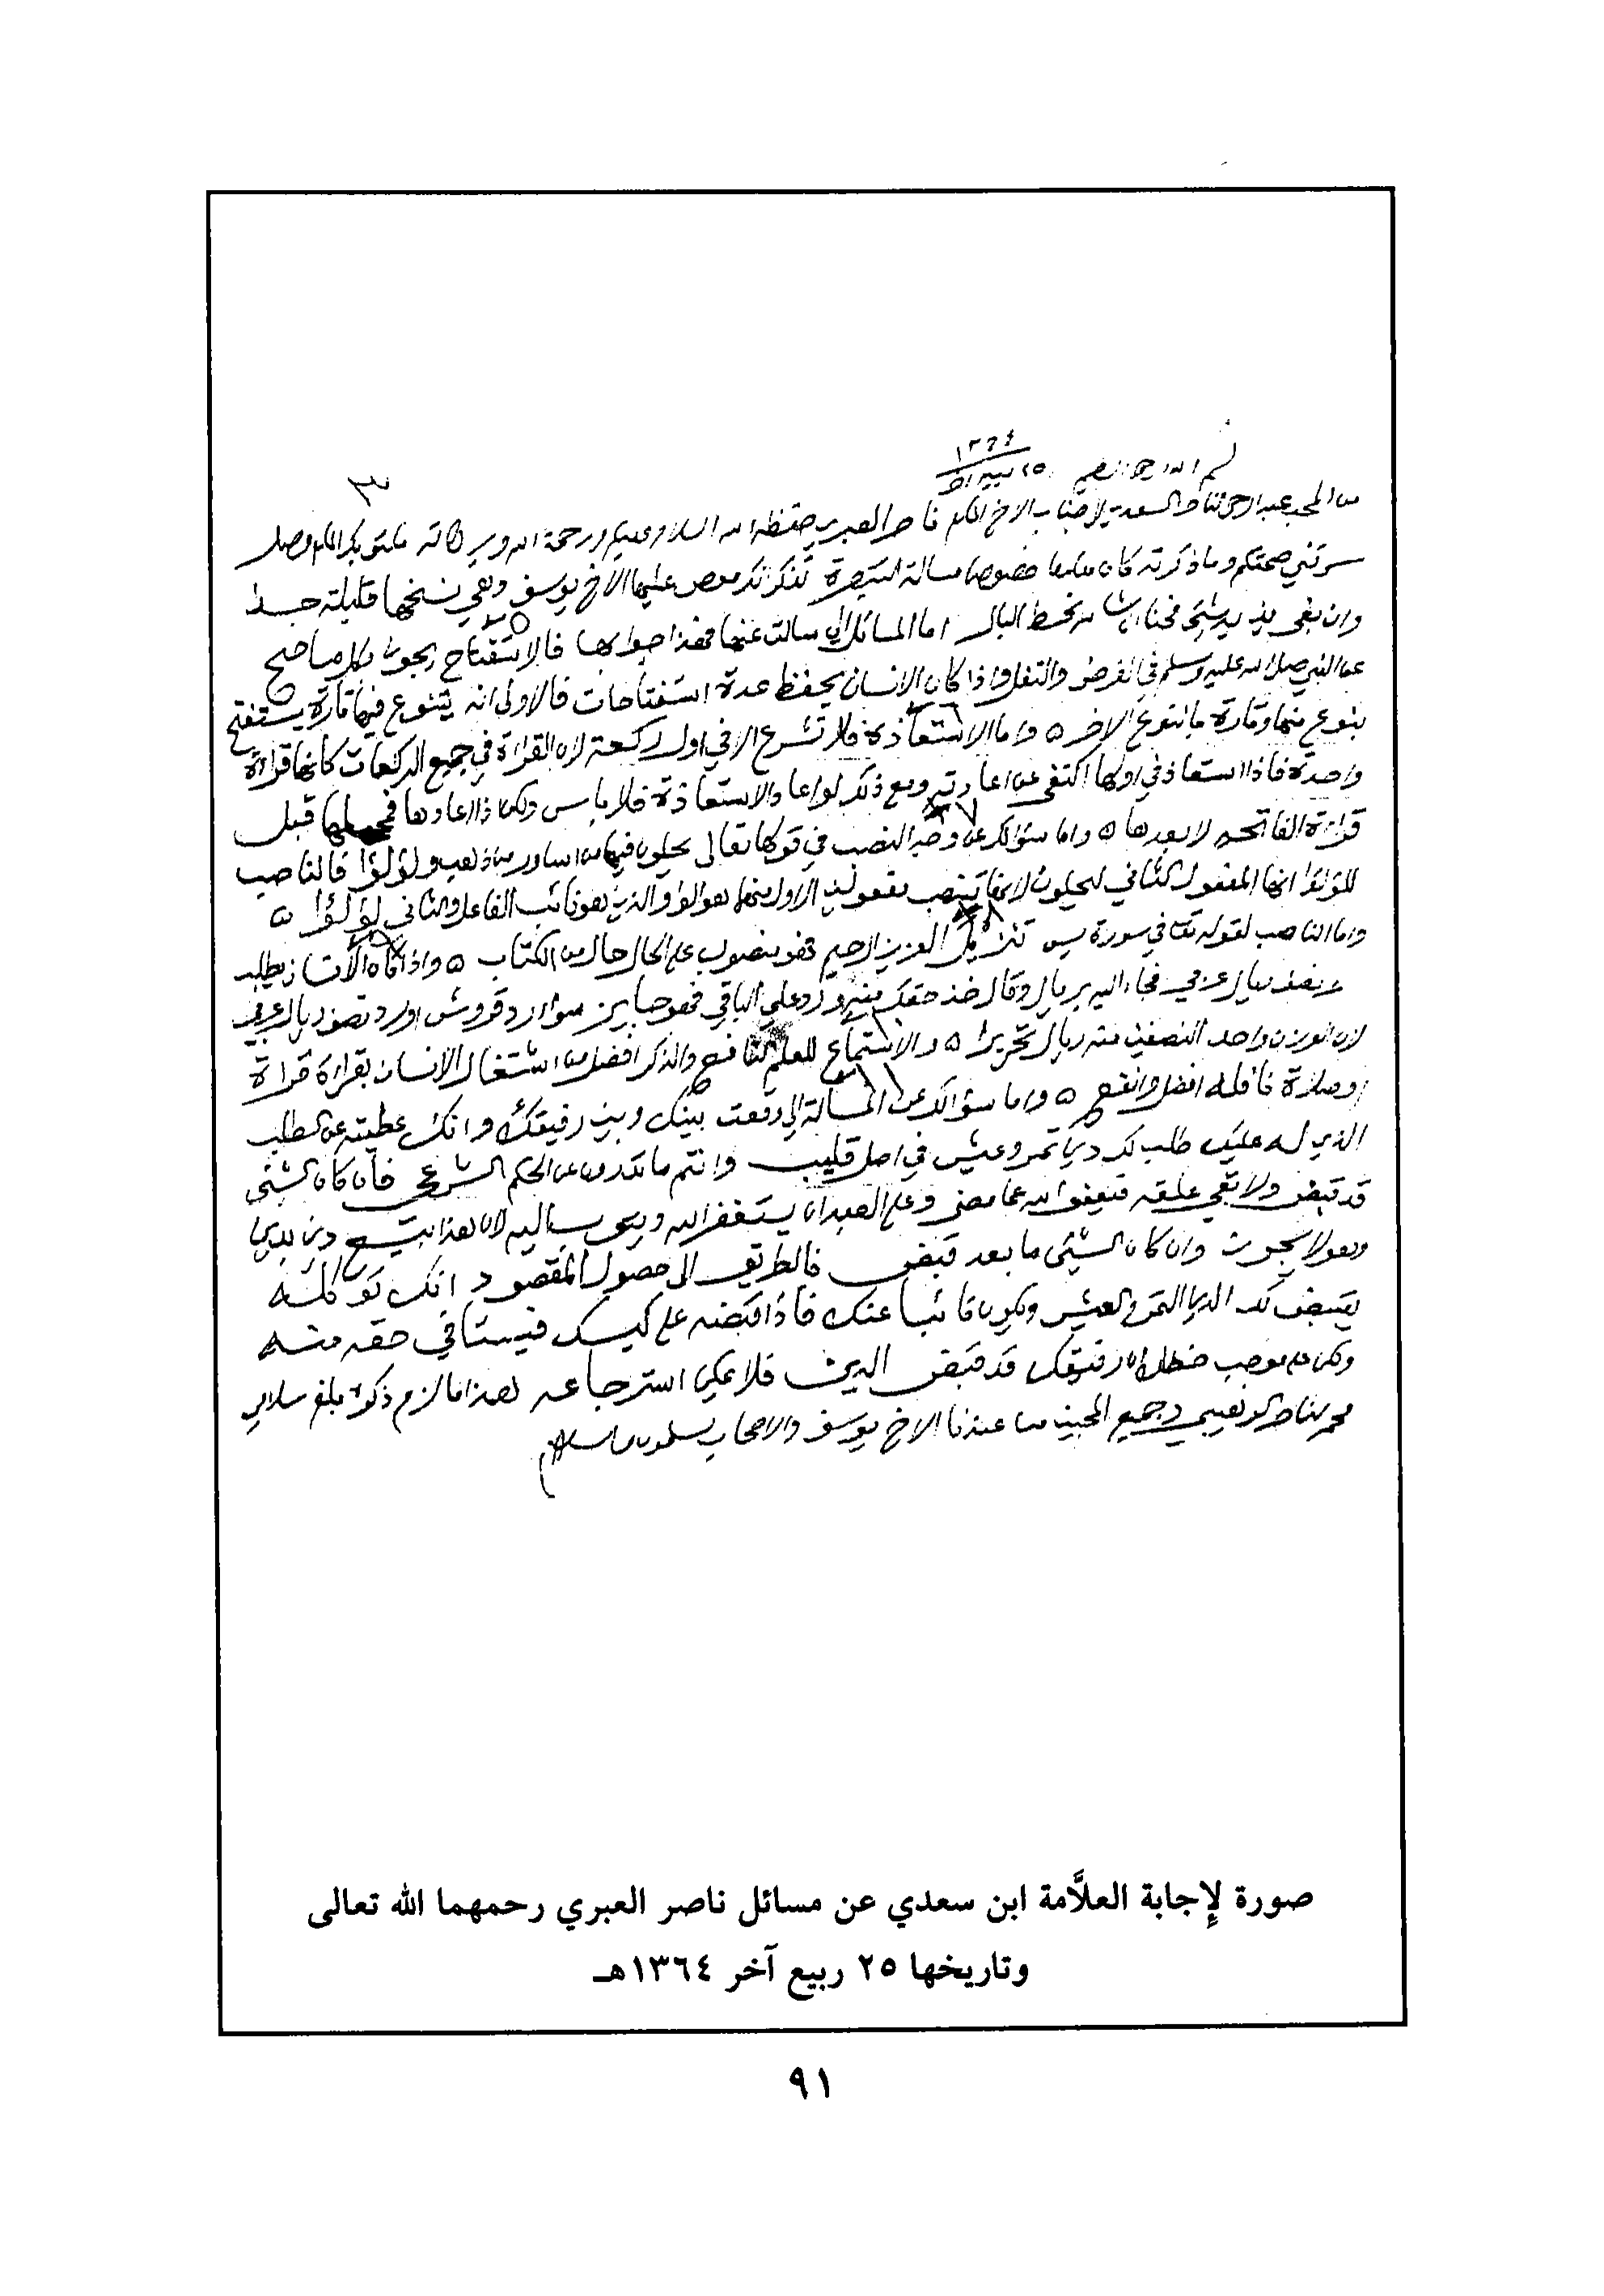 بسم الله الرحمن الرحيم ٢٥ ربيع آخر ١٣٦٤
٣
من المحب عبد الرحمن الناصر السعدي لاجناب الاخ المكرم ناصر العبري حفظه الله السلام عليكم ورحمة الله وبركاته مكتوبكم المكرم وصل
سرتني صحتكم وما ذكرته كان معلوما خصوصا مسالة التبصرة تذكر انك موص عليها الاخ يوسف وهي نسخها قليلة جدا
وان بغى يذ يد شيء فحنا ان شاء الله نحط البال اما المسائل التي سالت عنها فهذا جوابها فالاستفتاح يجوز بكل ما صح
عن النبي صلى الله عليه وسلم في الفرض والنفل واذا كان الانسان يحفظ عدة استفتاحات فالاولى انه يتنوع فيها تارة يستفتح
بنوع منها وتارة بالنوع الاخر ٥ واما الاستعاذة فلا تشرع الا في اول ركعة لان القراءة في جميع الركعات كانها قراءة
واحدة فاذا استعاذ في اولها اكتفى عن اعادته ومع ذلك لو اعاد الاستعاذة فلا باس ولكن اذا اعادها فمحلها قبل
قراءة الفاتحة لا بعدها ٥ واما سؤالك عن وجه النصب في قوله تعالى يحلون فيها من اساور من ذهب ولؤلؤا فالناصب
للؤلؤا انها المفعول الثاني ليحلون لانها تنصب مفعولين الاول منهما هو الواو الذي هو نائب الفاعل والثاني لؤلؤا ٥
واما الناصب لقوله تعالى في سورة يس تنزيل العزيز الرحيم فهو منصوب على الحال حال من الكتاب ٥ واذا كان الانسان يطلب
نصف ريال عربي فجاء اليه بريال وقال خذ حقك منه ورد علي الباقي فهو جايز سواء رد قروش او رد نصف ريال عربي
لان الوزن واحد النصفين منه ريال تحريرا ٥ والاستماع للعلم النافع والذكر افضل من اشتغال الانسان بقراءة قراءة
او صلاة نافلة افضل وانفع ٥ واما سؤالك عن المسالة التي وقعت بينك وبين رفيقك وانك عطيته عن الطلب
الذي له عليك طلب لك دين تمر وعيش في اصل قليب وانتم ما تدرون عن الحكم الشرعي فان كان الشيء
قد قبض ولا بقي علقه فيعفو الله عما مضى وعلى العبد ان يستغفر الله ويتوب اليه لان هذا بيع دين بدين
وهو لا يجوز وان كان الشيء ما بعد قبض فالطريق الى حصول المقصود انك توكله
يقبض لك الدين التمر والعيش ويكون نائبا عنك فاذا قبضه على كيسك فيستافي حقه منه
ولكن على موجب خطك ان رفيقك قد قبض الدين فلا يمكن استرجاعه هذا ما لزم ذكره بلغ سلامي
محمد الناصر الوهيبي وجميع المحبين من عندنا الاخ يوسف والاصحاب يسلمون والسلام
صورة لإجابة العلاَّمة ابن سعدي عن مسائل ناصر العبري رحمهما الله تعالى
وتاريخها ٢٥ ربيع آخر ١٣٦٤هـ
٩١